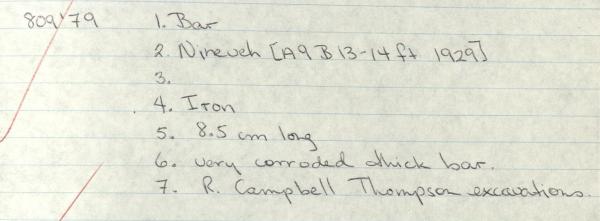 809'79 1. Bar
2. Nineveh [A9 B 13-14 ft 1929]
3.
4. Iron
5. 8.5 cm long
6. very corroded thick bar.
7. R. Campbell Thompson excavations.